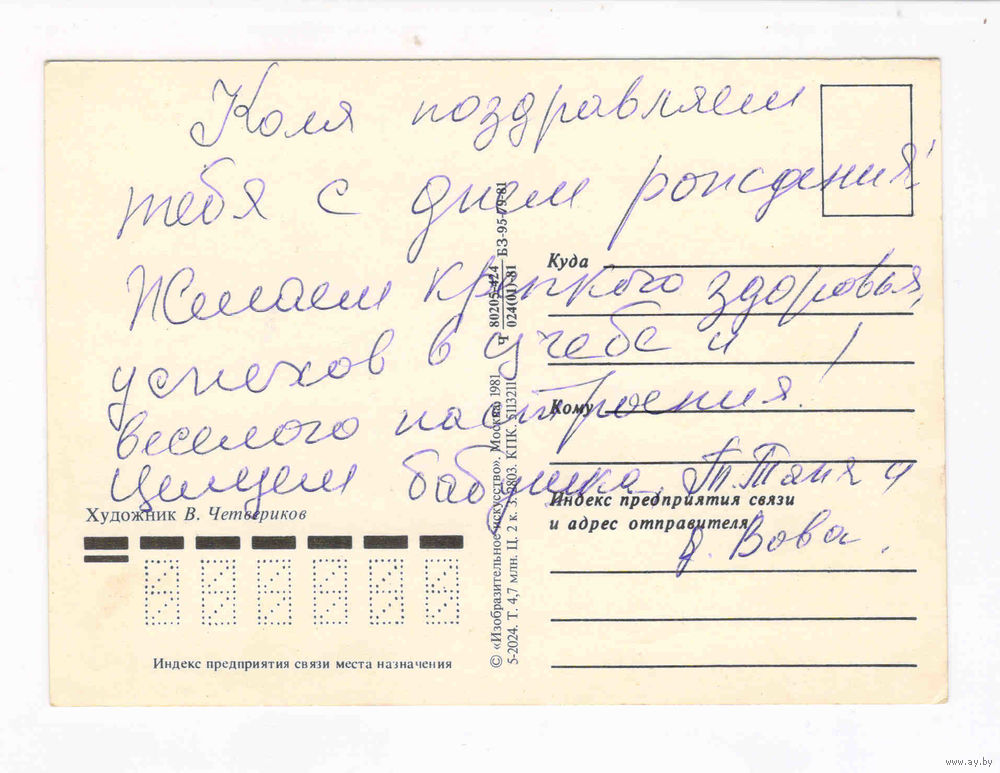 Коля поздравляем
тебя с днем рождения!
Желаем крепкого здоровья,
успехов в учебе и
веселого настроения!
Целуем бабушка, т. Таня и
д. Вова.
Куда
Кому
Индекс предприятия связи
и адрес отправителя
Художник В. Четвериков
Индекс предприятия связи места назначения
© «Изобразительное искусство». Москва 1981
5-2024. Т. 4,7 млн. Ц. 2 к. З. 3803. КПК. 5113211
Ч 80205-424
024(01)-81
БЗ-95-79-81
www.ay.by